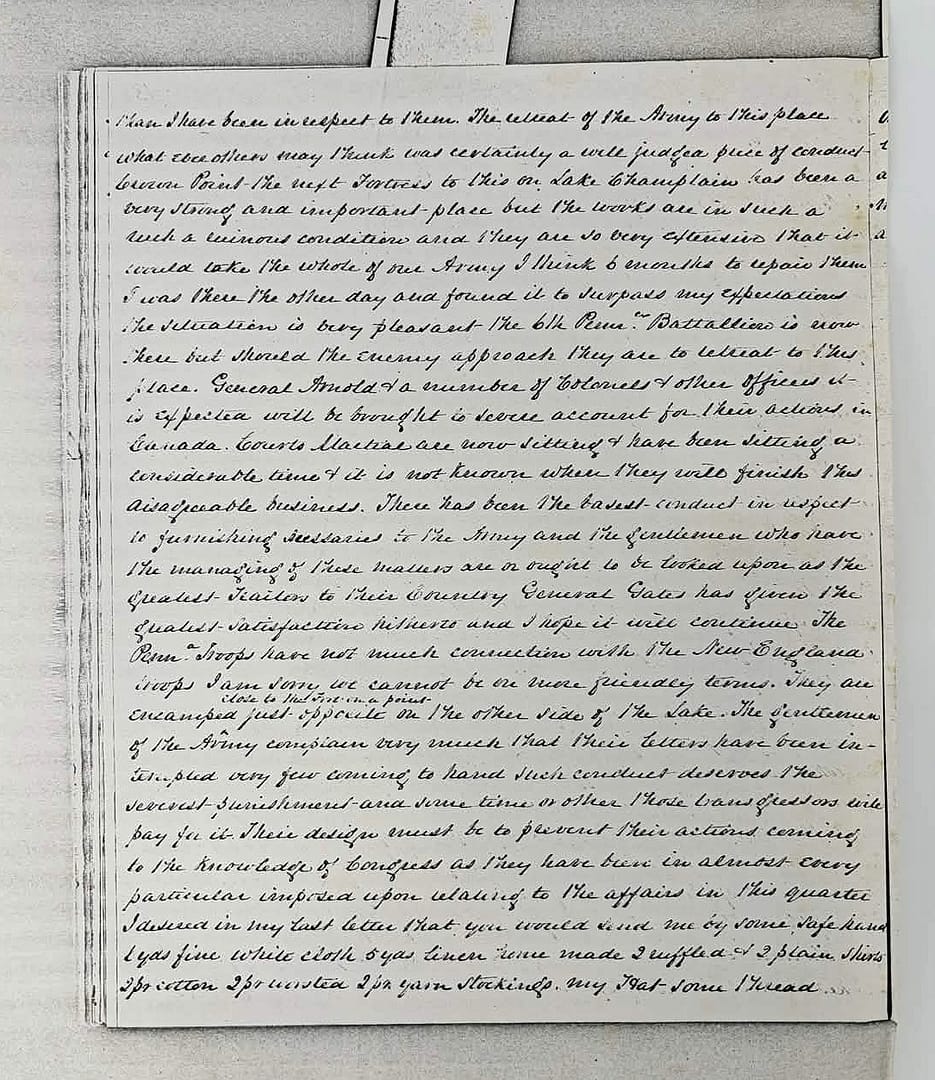 than I have been in respect to them. The retreat of the Army to this place
what ever others may think was certainly a well judged piece of conduct
Crown Point the next Fortress to this on Lake Champlain has been a
very strong and important place but the works are in such a
such a ruinous condition and they are so very extensive that it
would take the whole of our Army I think 6 months to repair them
I was there the other day and found it to surpass my expectations
the situation is very pleasant the 6th Penna. Battallion is now
there but should the enemy approach they are to retreat to this
place. General Arnold & a number of Colonels & other officers it
is expected will be brought to severe account for their actions in
Canada. Courts Martial are now sitting & have been sitting a
considerable time & it is not known when they will finish this
disagreeable business. There has been the basest conduct in respect
to furnishing necessaries to the Army and the gentlemen who have
the managing of these matters are or ought to be looked upon as the
greatest Traitors to their Country General Gates has given the
greatest satisfaction hitherto and I hope it will continue The
Penna. Troops have not much connection with the New England
troops I am sorry we cannot be on more friendly terms. They are
close to the Fort on a point
encamped just opposite on the other side of the Lake. The gentlemen
of the Army complain very much that their letters have been in-
tercepted very few coming to hand such conduct deserves the
severest punishment and some time or other those transgressors will
pay for it. Their design must be to prevent their actions coming
to the knowledge of Congress as they have been in almost every
particular imposed upon relating to the affairs in this quarter
I desired in my last letter that you would send me by some safe hand
yds fine white cloth 5 yds linen some made 2 ruffled & 2 plain shirts
2 pr cotton 2 pr worsted 2 pr yarn stockings. my Hat some thread